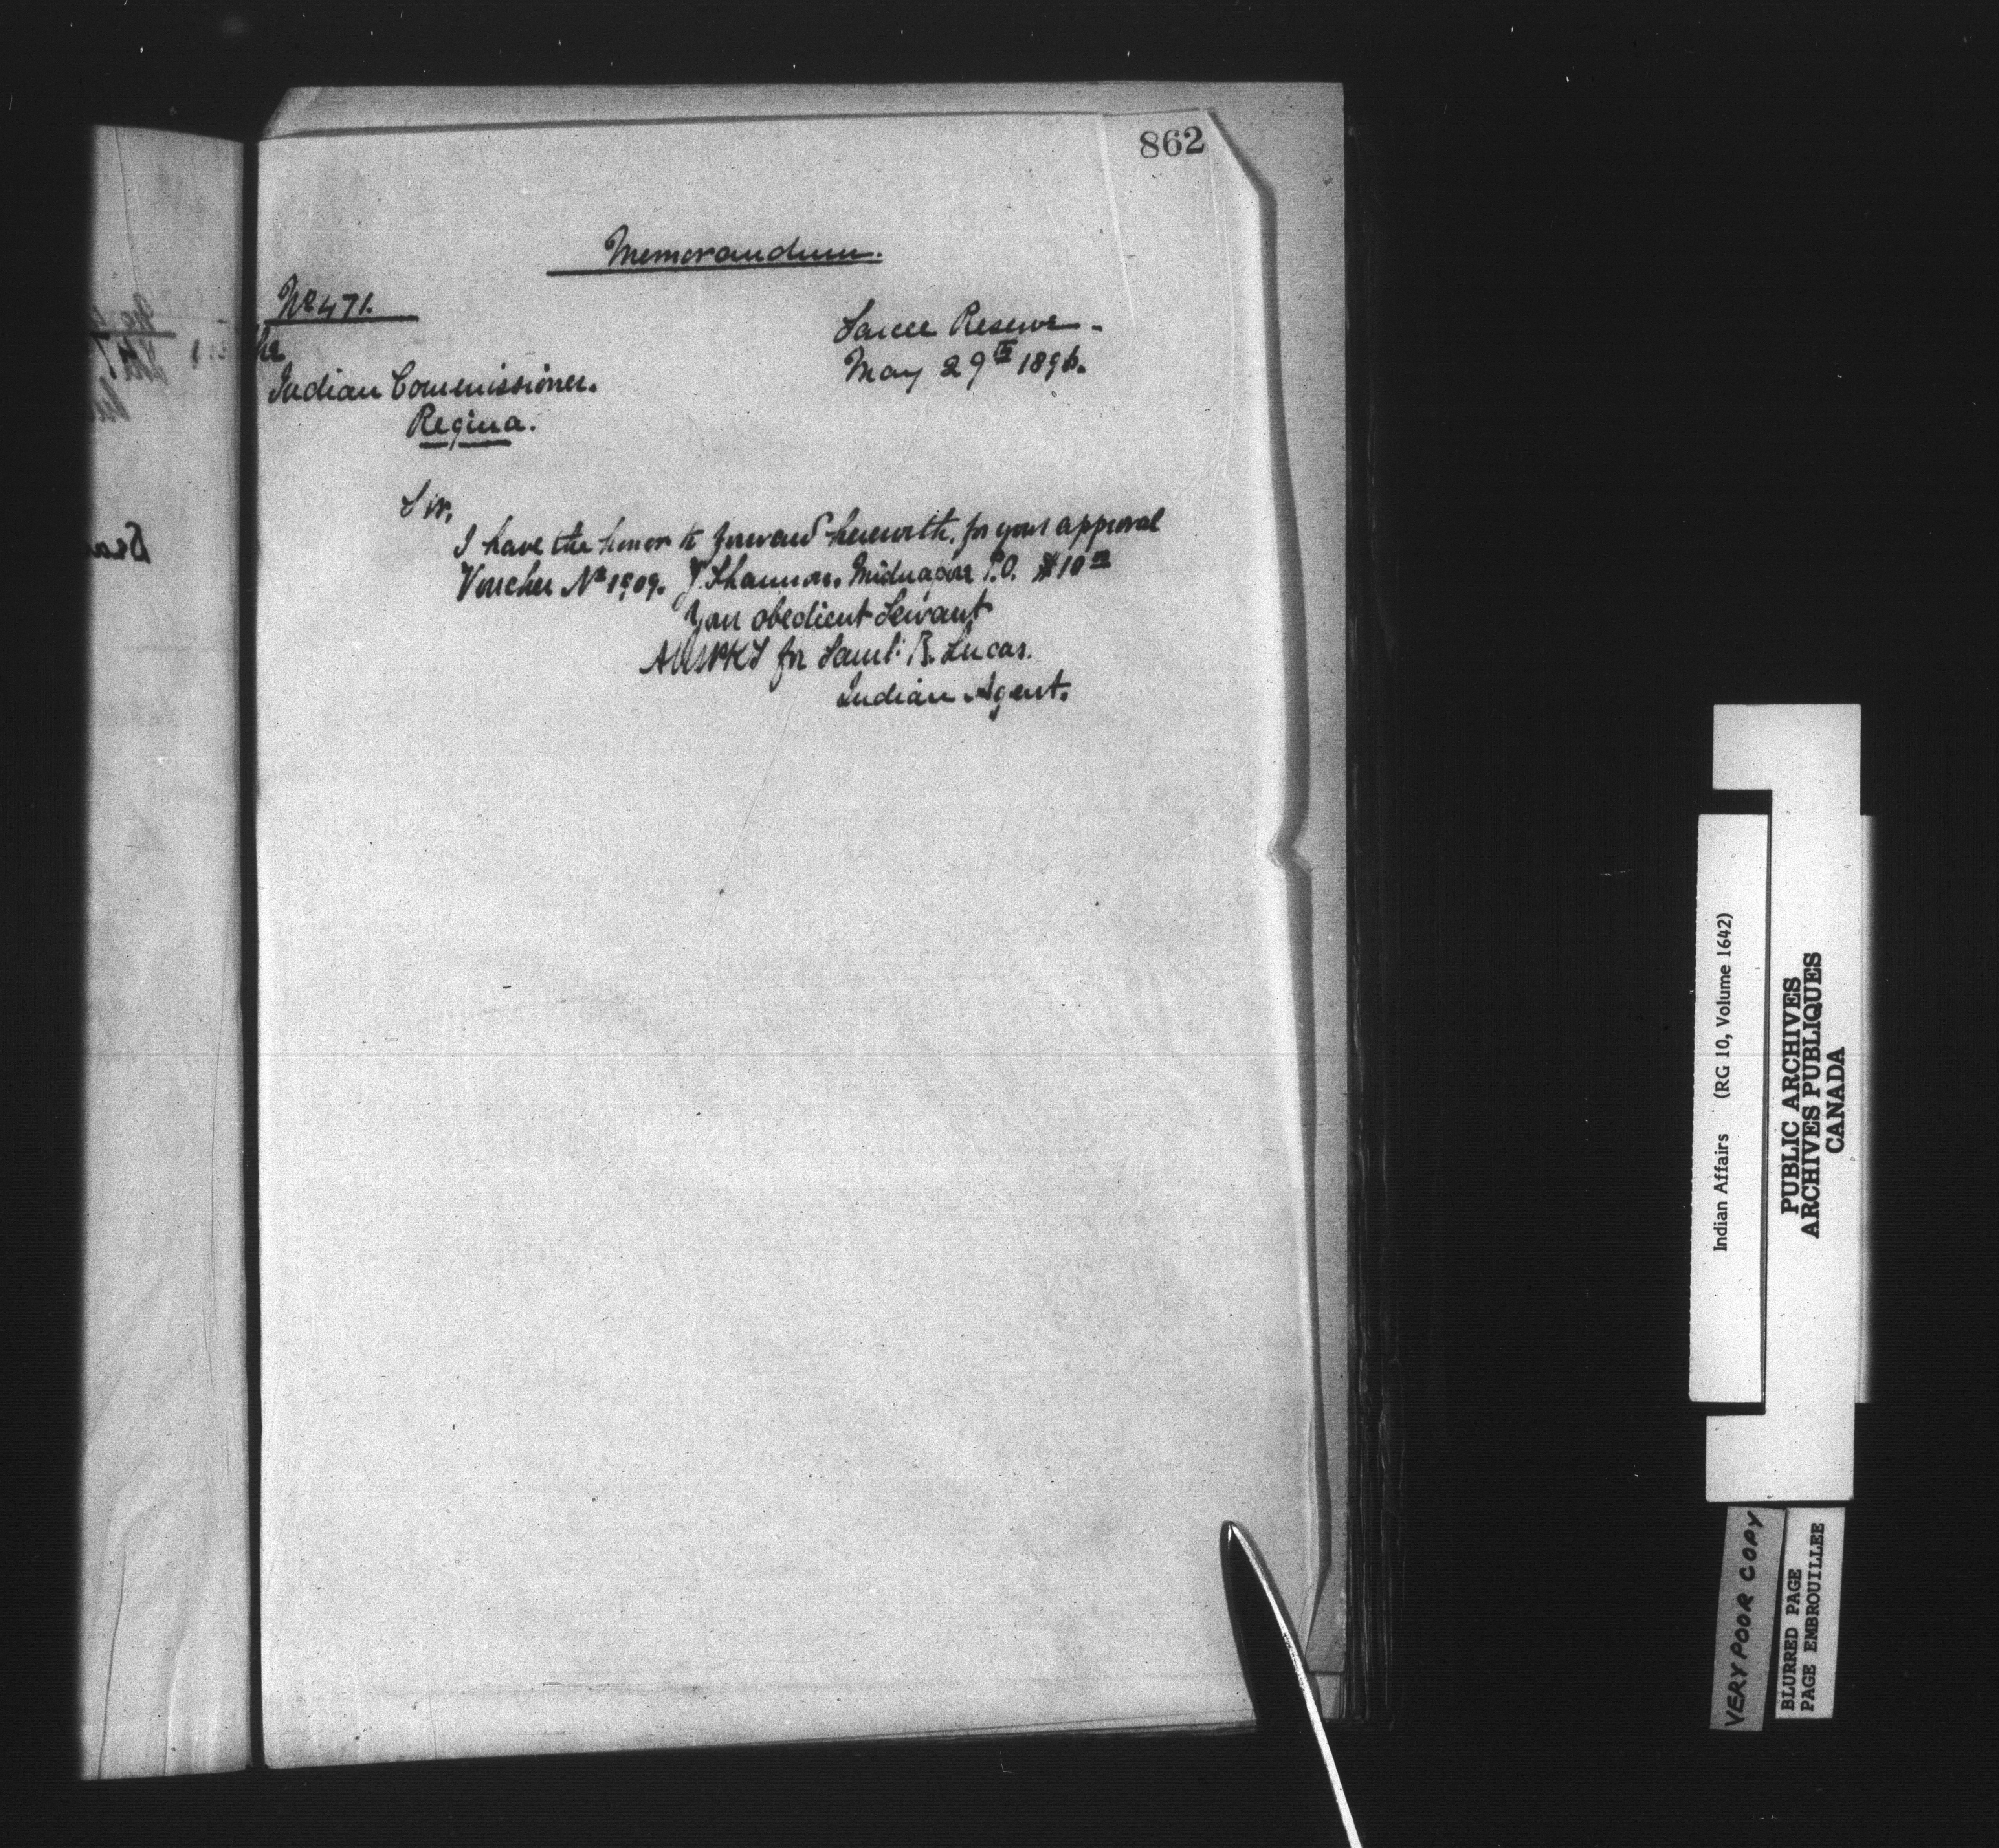 862
Memorandum.
No 471.
Sarcee Reserve -
May 29th 1896.
The
Indian Commissioner.
Regina.
Sir,
I have the honor to forward herewith, for your approval
Voucher No 1909. J. Shannon. Midnapore P.O. $10.00
Your obedient Servant
for Saml: B. Lucas.
Indian Agent.
Indian Affairs (RG 10, Volume 1642)
PUBLIC ARCHIVES
ARCHIVES PUBLIQUES
CANADA
VERY POOR COPY
BLURRED PAGE
PAGE EMBROUILLEE